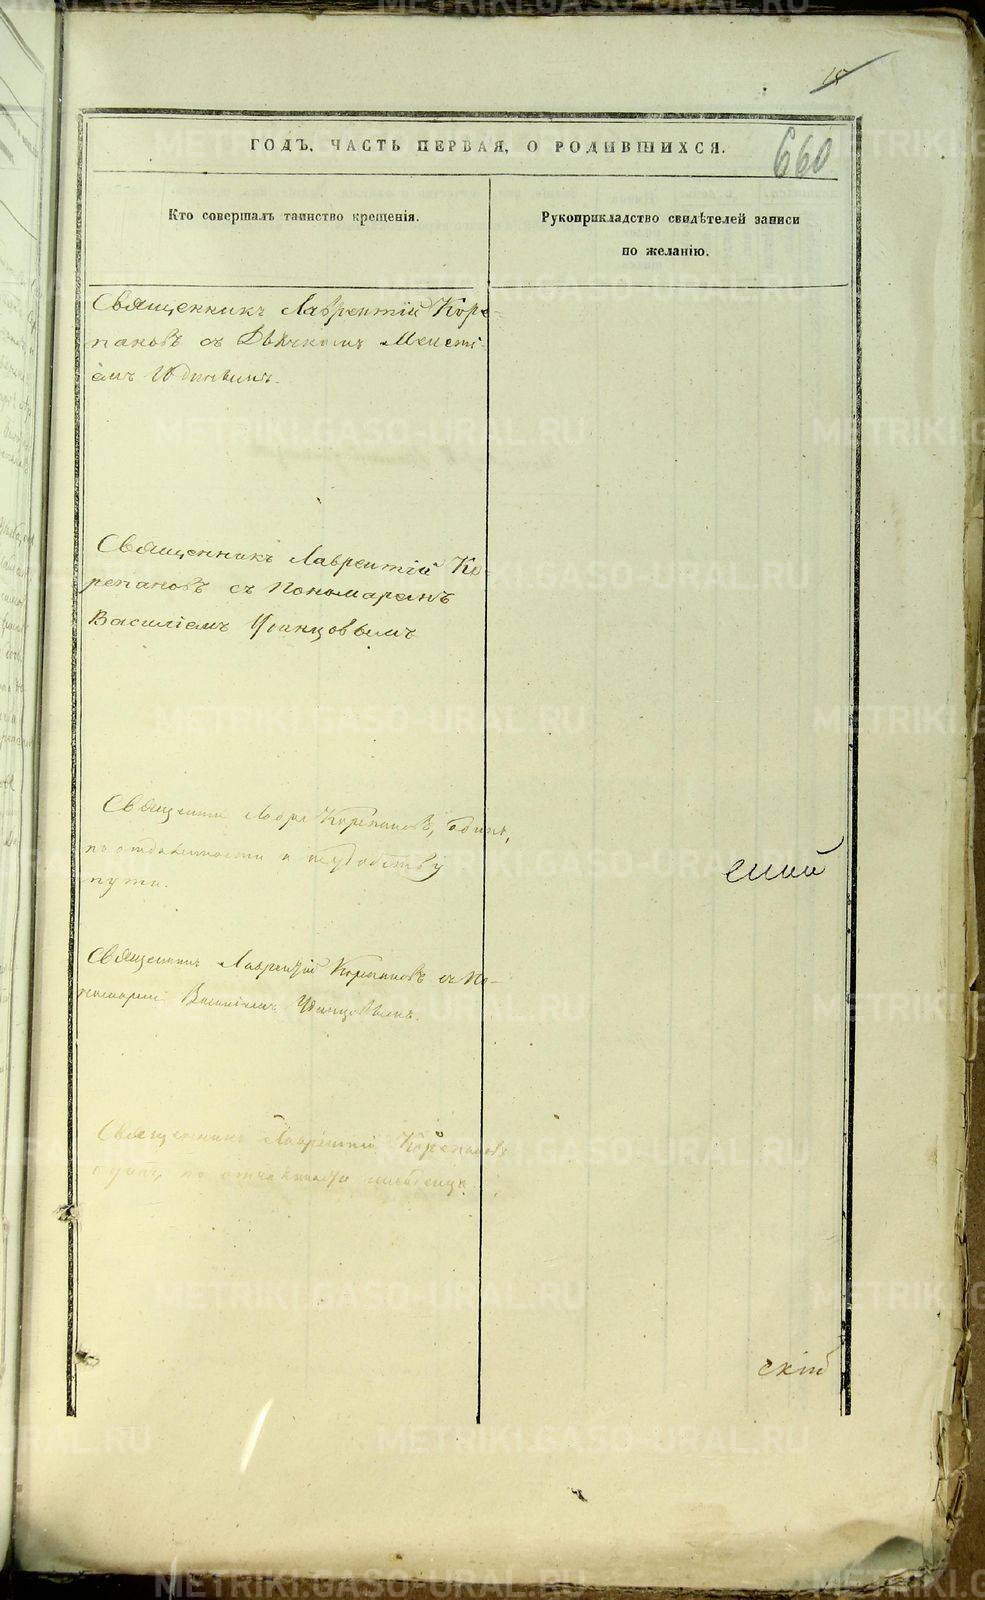 660
ГОДЪ, ЧАСТЬ ПЕРВАЯ, О РОДИВШИХСЯ.
Кто совершалъ таинство крещенія.
Рукоприкладство свидѣтелей записи
по желанію.
Священникъ Лаврентій Коре-
пановъ съ Дьячкомъ
Священникъ Лаврентій Ко-
репановъ съ Пономаремъ
Василіемъ Удинцовымъ
Священникъ Лавр. Корепановъ, одинъ,
по отдаленности и неудобству
пути.
Священникъ Лаврентій Корепановъ съ По-
номаремъ Василіемъ Удинцовымъ.
Священникъ Лаврентій Корепановъ
скій
METRIKI.GASO-URAL.RU